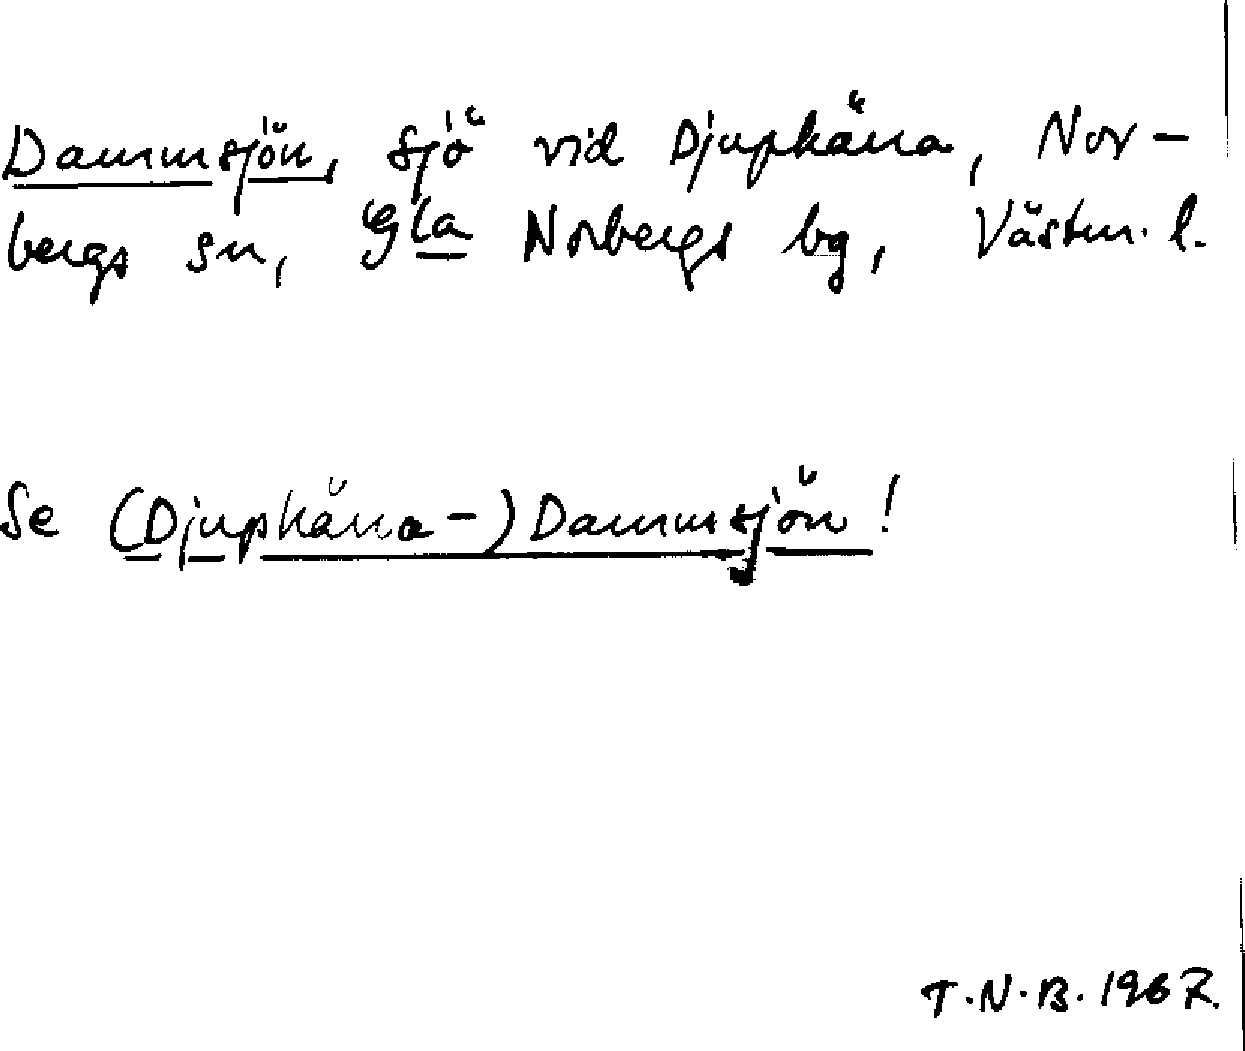 Dammsjön, sjö vid Djupkärra, Nor-
bergs sn, Gla Norbergs bg, Västm. l.
Se (Djupkärra-) Dammsjön!
T.N.B. 1967.